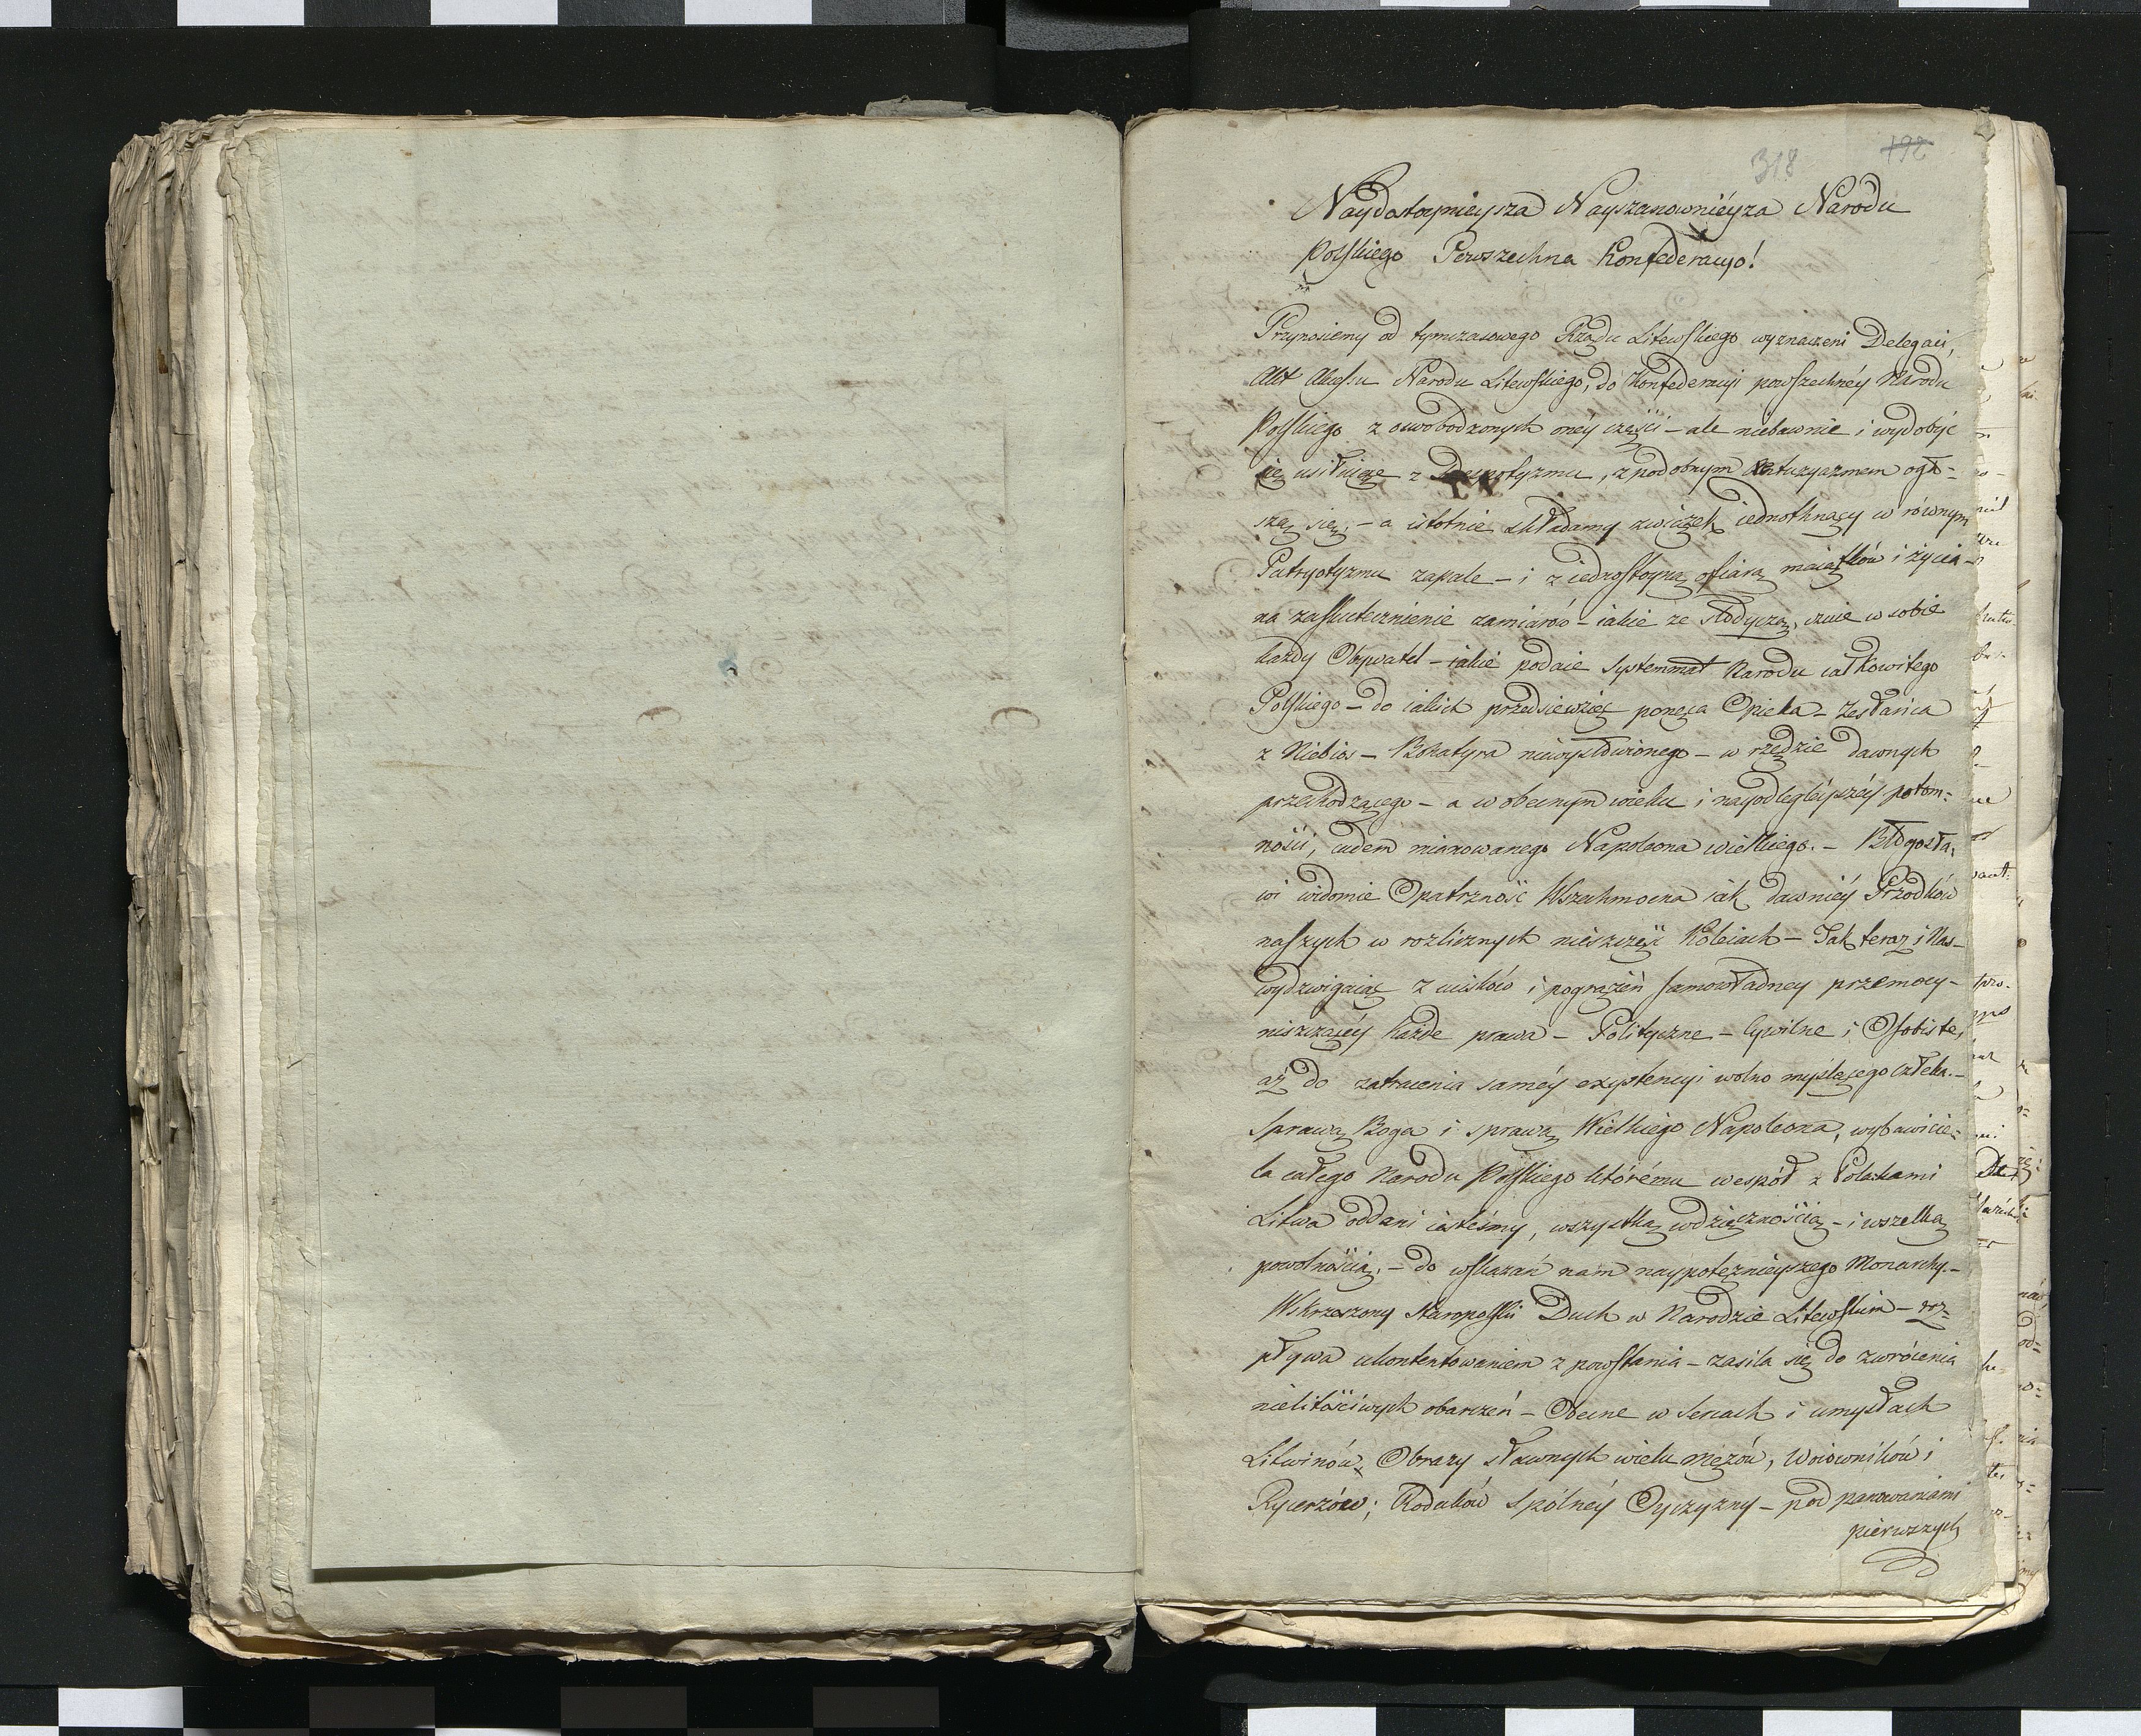 318 192
Naydostoynieysza Nayszanownieysza Narodu
Polskiego Powszechna Konfederacyo!
Przynosiemy od tymczasowego Rządu Litewskiego wyznaczeni Delegaci,
Akt Akcessu Narodu Litewskiego, do Konfederacyi powszechnéy Narodu
Polskiego z oswobodzonych onéy części – ale niebawnie i wydobyć
się usiłuiące z Despotyzmu, z podobnym Entuzyazmem ogło=
szą się, – a istotnie składamy związek iednotknący w równym
Patryotyzmu zapale – i z iednostayną ofiarą maiątków i życia –
na zaskutecznienie zamiarów – iakie ze słodyczą, czuie w sobie
każdy Obywatel – iakie podaie Systemmat Narodu całkowitego
Polskiego – do iakich przedsięwzięć ponęca Opieka – Zesłańca
z Niebios – Bohatyra niewysłowionego – w rzędzie dawnych
przechodzącego – a w obecnym wieku i nayodlegléyszéy potom=
ności, cudem mianowanego Napoleona wielkiego. – Błogosła=
wi widomie Opatrzność Wszechmocna iak dawniéy Przodków
naszych w rozlicznych nieszczęść Koleiach – Tak teraz i Nas –
wydzwigaiąc z ucisków i pogrążeń samowładney przemocy –
niszczącéy każde prawa – Polityczne – Cywilne i Osobiste,
aż do zatracenia saméy exystencyi wolno myślącego człeka. –
Sprawą Boga i sprawą Wielkiego Napoleona, wybawicie=
la całego Narodu Polskiego któremu wespół z Polakami
Litwa oddani iesteśmy, wszystką wdzięcznością – i wszelką
powolnością, – do wskazań nam naypotężnieyszego Monarchy. –
Wskrzeszony Staropolski Duch w Narodzie Litewskim – roz=
pływa ukontentowaniem z powstania – zasila się do zwrócenia
nielitościwych obarczeń – Obecne w sercach i umysłach
Litwinów, Obrazy sławnych wielu mężów, Woiowników i
Rycerzów; Rodaków Spólnéy Oyczyzny – pod panowaniami
pierwszych